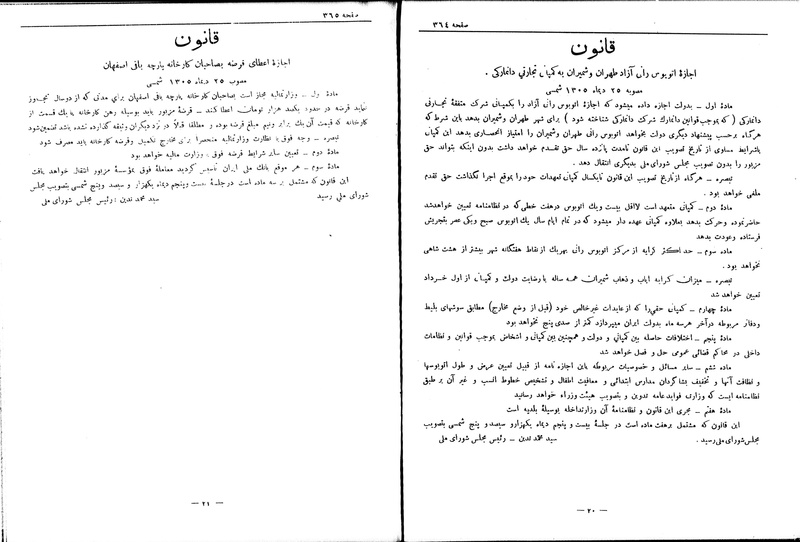 صفحه ۳۶٤
قانون
اجازهٔ اتوبوس رانی آزاد طهران وشمیران به کمپانی تجارتی دانمارکی .
مصوبه ۲۵ دیماه ۱۳۰۵ شمسی
مادهٔ اول ــ بدولت اجازه داده میشود که اجازهٔ اتوبوس رانی آزاد را بکمپانی شرکت متفقهٔ تجارتی
دانمارکی ( که بموجب قوانین دانمارك شرکت دانمارکی شناخته شود ) برای شهر طهران وشمیران بدهد باین شرط که
هرگاه برحسب پیشنهاد دیگری دولت بخواهد اتوبوس رانی طهران وشمیران را امتیاز انحصاری بدهد این کمپانی
بشرایط مساوی از تاریخ تصویب این قانون تامدت پانزده سال حق تقدم خواهد داشت بدون اینکه بتواند حق
مزبور را بدون تصویب مجلس شورای ملی بدیگری انتقال دهد .
تبصره ــ هرگاه از تاریخ تصویب این قانون تایکسال کمپانی تعهدات خود را بموقع اجرا نگذاشت حق تقدم
ملغی خواهد بود .
مادهٔ دوم ــ کمپانی متعهد است لااقل بیست ویك اتوبوس درهفت خطی که در نظامنامه تعیین خواهدشد
حاضرنموده وحرکت بدهد بعلاوه کمپانی عهده دار میشود که در تمام ایام سال یك اتوبوس صبح ویکی عصر بتجریش
فرستاده وعودت بدهد
ماده سوم ــ حد اکثر کرایه از مرکز اتوبوس رانی بهریك از نقاط هفتگانه شهر بیشتر از هشت شاهی
نخواهد بود .
تبصره ــ میزان کرایه ایاب و ذهاب شمیران همه ساله با رضایت دولت و کمپانی از اول خرداد
تعیین خواهد شد
مادهٔ چهارم ــ کمپانی حقی را که از عایدات غیرخالص خود (قبل از وضع مخارج) مطابق سوشهای بلیط
ودفاتر مربوطه درآخر هرسه ماه بدولت ایران میپردازد کمتر از صدی پنج نخواهد بود
مادهٔ پنجم ــ اختلافات حاصله بین کمپانی و دولت و همچنین بین کمپانی و اشخاص بموجب قوانین و نظامات
داخلی در محاکم قضائی عمومی حل و فصل خواهد شد
ماده ششم ــ سایر مسائل و خصوصیات مربوطه باین اجازه نامه از قبیل تعیین عرض و طول اتوبوسها
و نظافت آنها و تخفیف بشاگردان مدارس ابتدائی و معافیت اطفال و تشخیص خطوط انسب و غیر آن بر طبق
نظامنامه ایست که وزارت فوایدعامه تدوین و بتصویب هیئت وزراء خواهد رسانید
مادهٔ هفتم ــ مجری این قانون و نظامنامهٔ آن وزارتداخله بوسیلهٔ بلدیه است
این قانون که مشتمل برهفت ماده است در جلسهٔ بیست و پنجم دیماه یکهزارو سیصد و پنج شمسی بتصویب
مجلس شورای ملی رسید . سید محمد تدین ــ رئیس مجلس شورای ملی
— ۲۰ —
صفحه ۳۶۵
قانون
اجازهٔ اعطای قرضه بصاحبان کارخانه پارچه بافی اصفهان
مصوب ۲۵ دیماه ۱۳۰۵ شمسی
مادهٔ اول ــ وزارتمالیه مجاز است بصاحبان کارخانه پارچه بافی اصفهان برای مدتی که از دوسال تجاوز
ننماید قرضه در حدود یکصد هزار تومان اعطا کند ــ قرضهٔ مزبور باید بوسیله رهن کارخانه یا یك قسمت از
کارخانه که قیمت آن یك برابر ونیم مبلغ قرضه بوده و مطلقا قبلاً در نزد دیگران وثیقه گذارده نشده باشد تضمین‌شود
تبصره ــ وجه فوق با نظارت وزارتمالیه منحصرا برای مخارج تکمیل وقرضه کارخانه باید مصرف شود
مادهٔ دوم ــ تعیین سایر شرایط قرضه فوق با وزارت مالیه خواهد بود
مادهٔ سوم ــ هر موقع بانك ملی ایران تاسیس گردید معاملهٔ فوق بمؤسسهٔ مزبور انتقال خواهد یافت
این قانون که مشتمل بر سه ماده است درجلسهٔ بیست وپنجم دیماه یکهزار و سیصد وپنج شمسی بتصویب مجلس
شورای ملی رسید سید محمد تدین ــ رئیس مجلس شورای ملی
— ۲۱ —